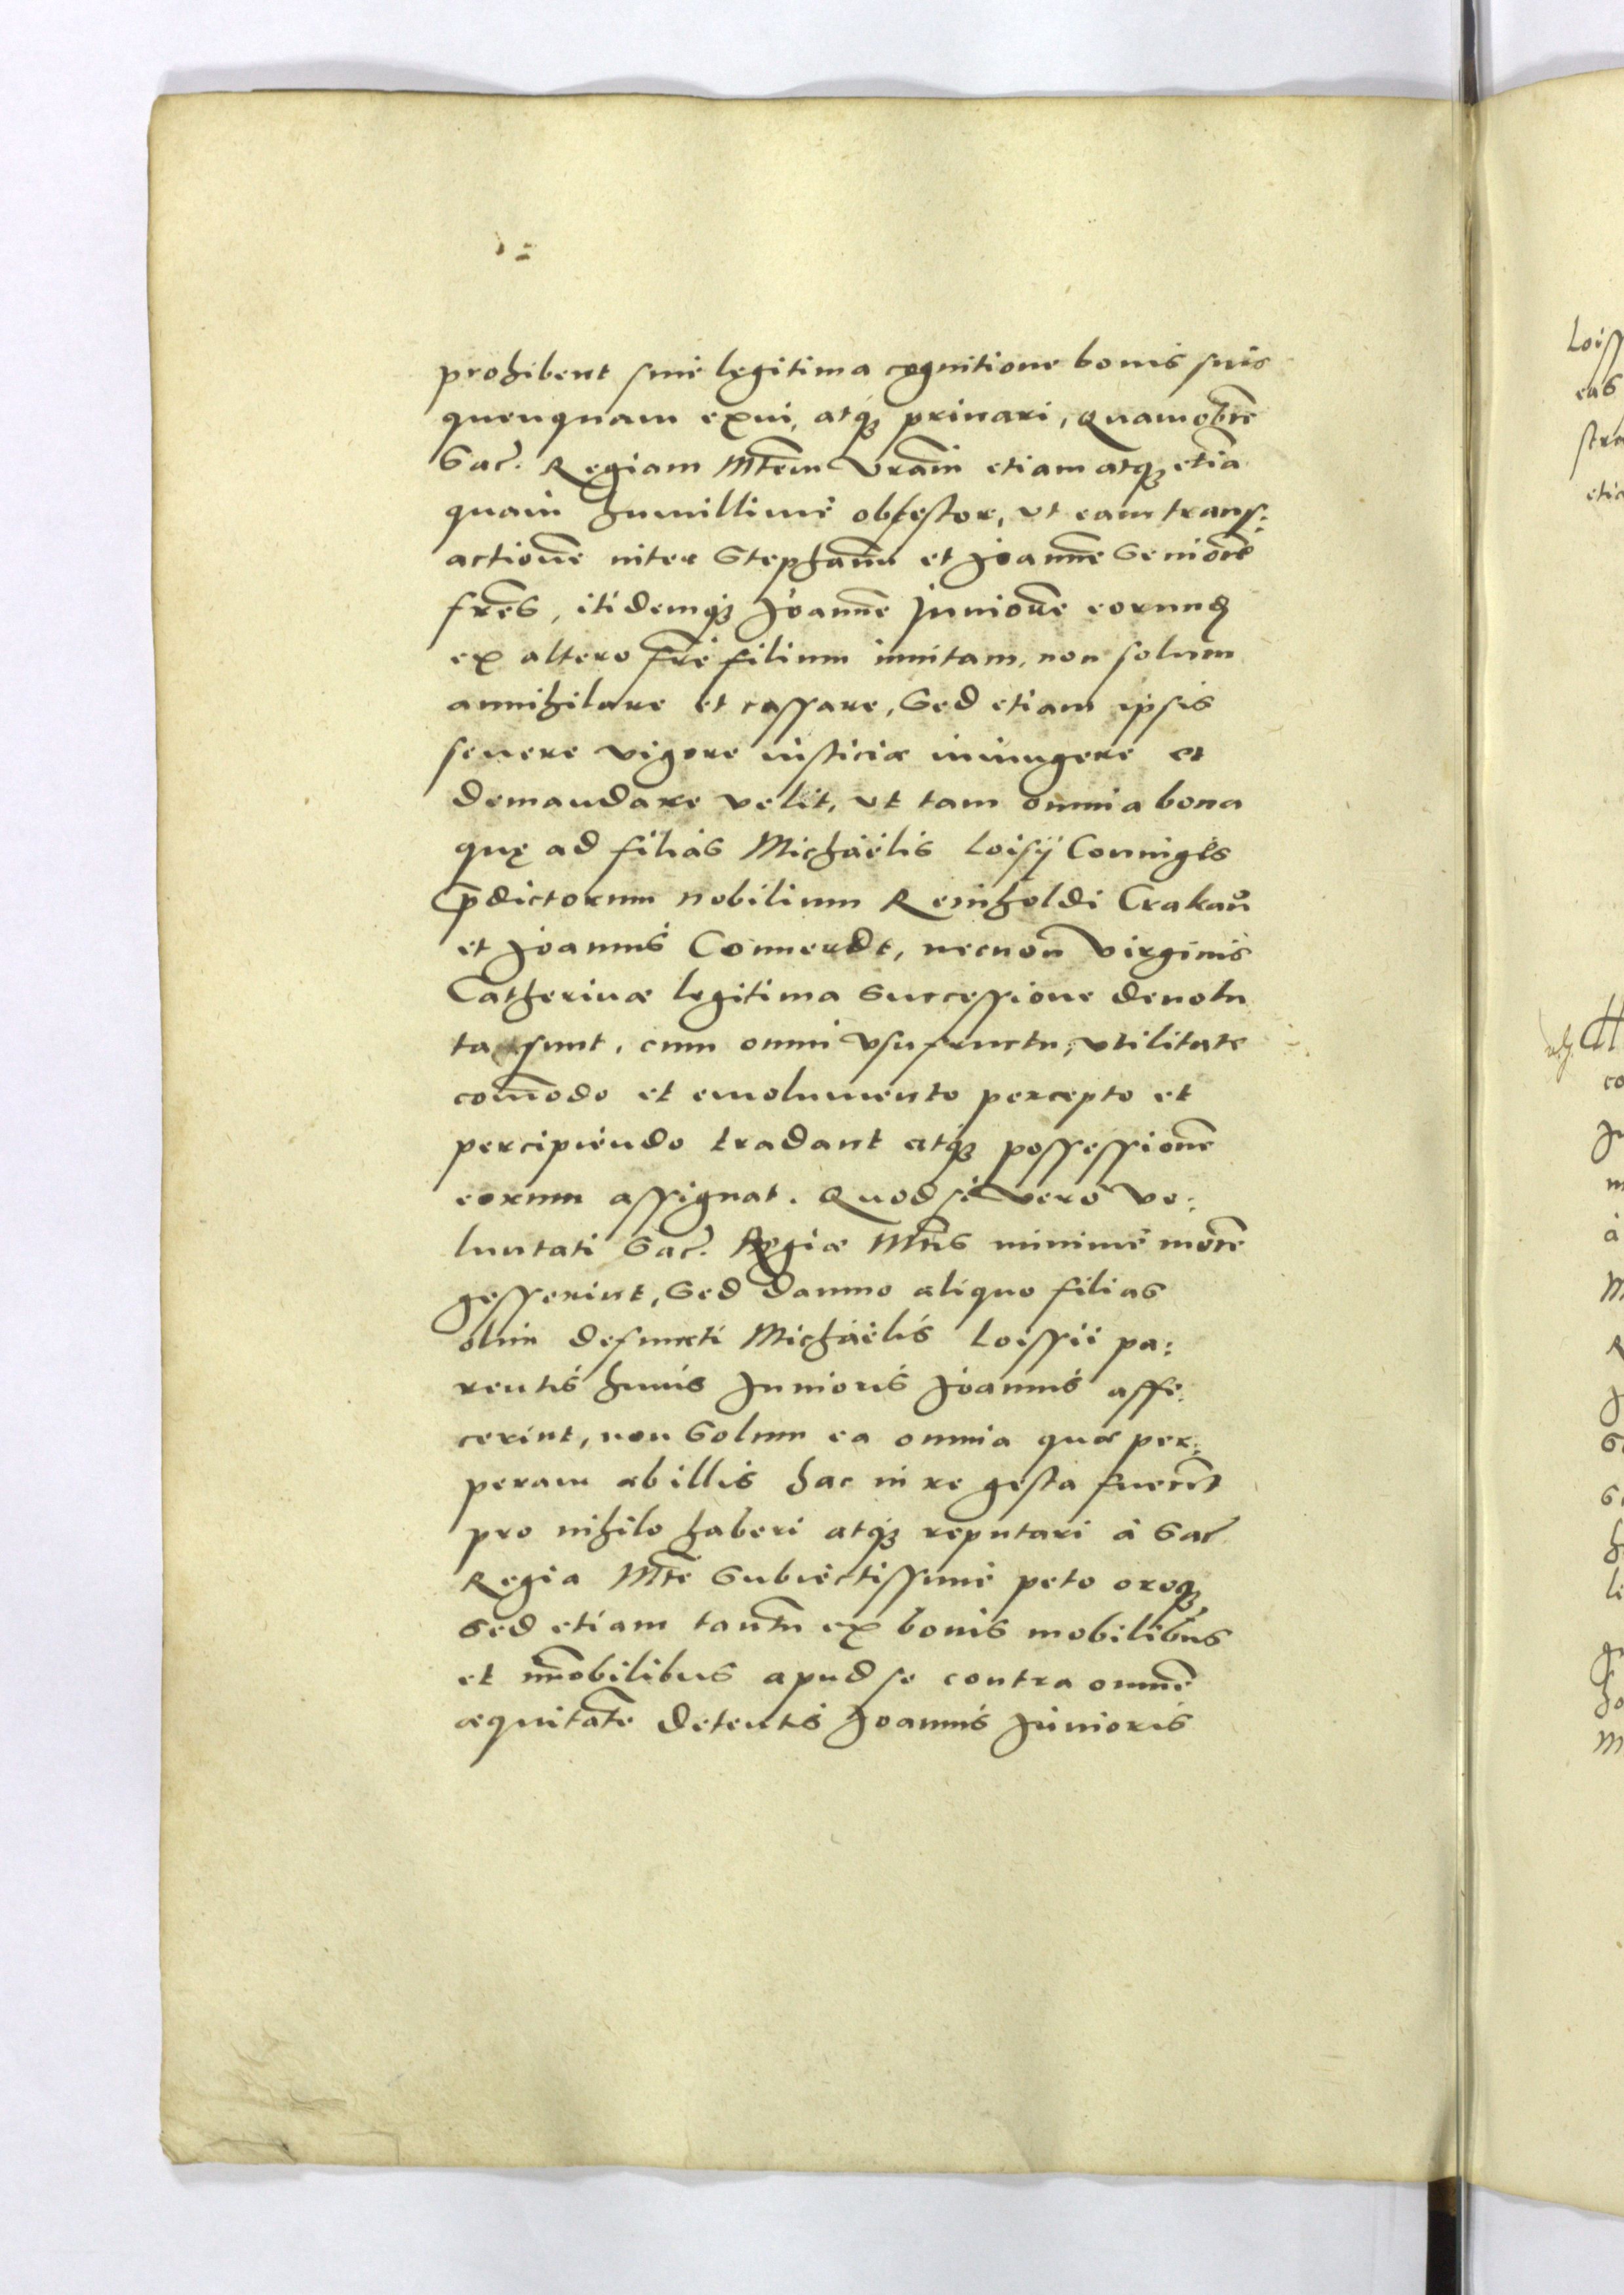 prohibent sine legitima cognitione bonis suis
quenquam exui, atq₃ priuari, Quamobrē
Sac. Regiam Mtem Vram etiam atq₃ etiā
quam humillimè obtestor, vt eam trans:
actionē inter Stephanū et Joannē Seniorē
frēs, itidemq₃ Joannē Juniorē eorund
ex altero frē filium initam, non solum
annihilare et cassare, Sed etiam ipsis
seuere vigore iusticiæ iniungere et
demandare velit, vt tam omnia bona
quę ad filias Michaëlis Loisij Coniuges
p̄dictorum nobilium Reinholdi Crakaů
et Joannis Connerdt, necnon Virginis
Catherinæ legitima Successione deuolu
ta sunt, cum omni vsufructu, vtilitate
com̄odo et emolumento percepto et
percipiendo tradant atq₃ possessionē
eorum assignat. Quod si vero vo:
luntati Sac. Regiæ Mtis minimè morē
gesserint, Sed damno aliquo filias
olim defuncti Michaëlis Loissii pa:
rentis huius Junioris Joannis affe:
cerint, non Solum ea omnia quæ per:
peram ab illis hac in re gesta fuerīt
pro nihilo haberi atq₃ reputari à Sac
Regia Mte Subiectissimè peto oroq₃
Sed etiam tantū ex bonis mobilibus
et im̄obilibus apud se contra omnē
æquitatē detentis Joannis Junioris
Loiss
eas